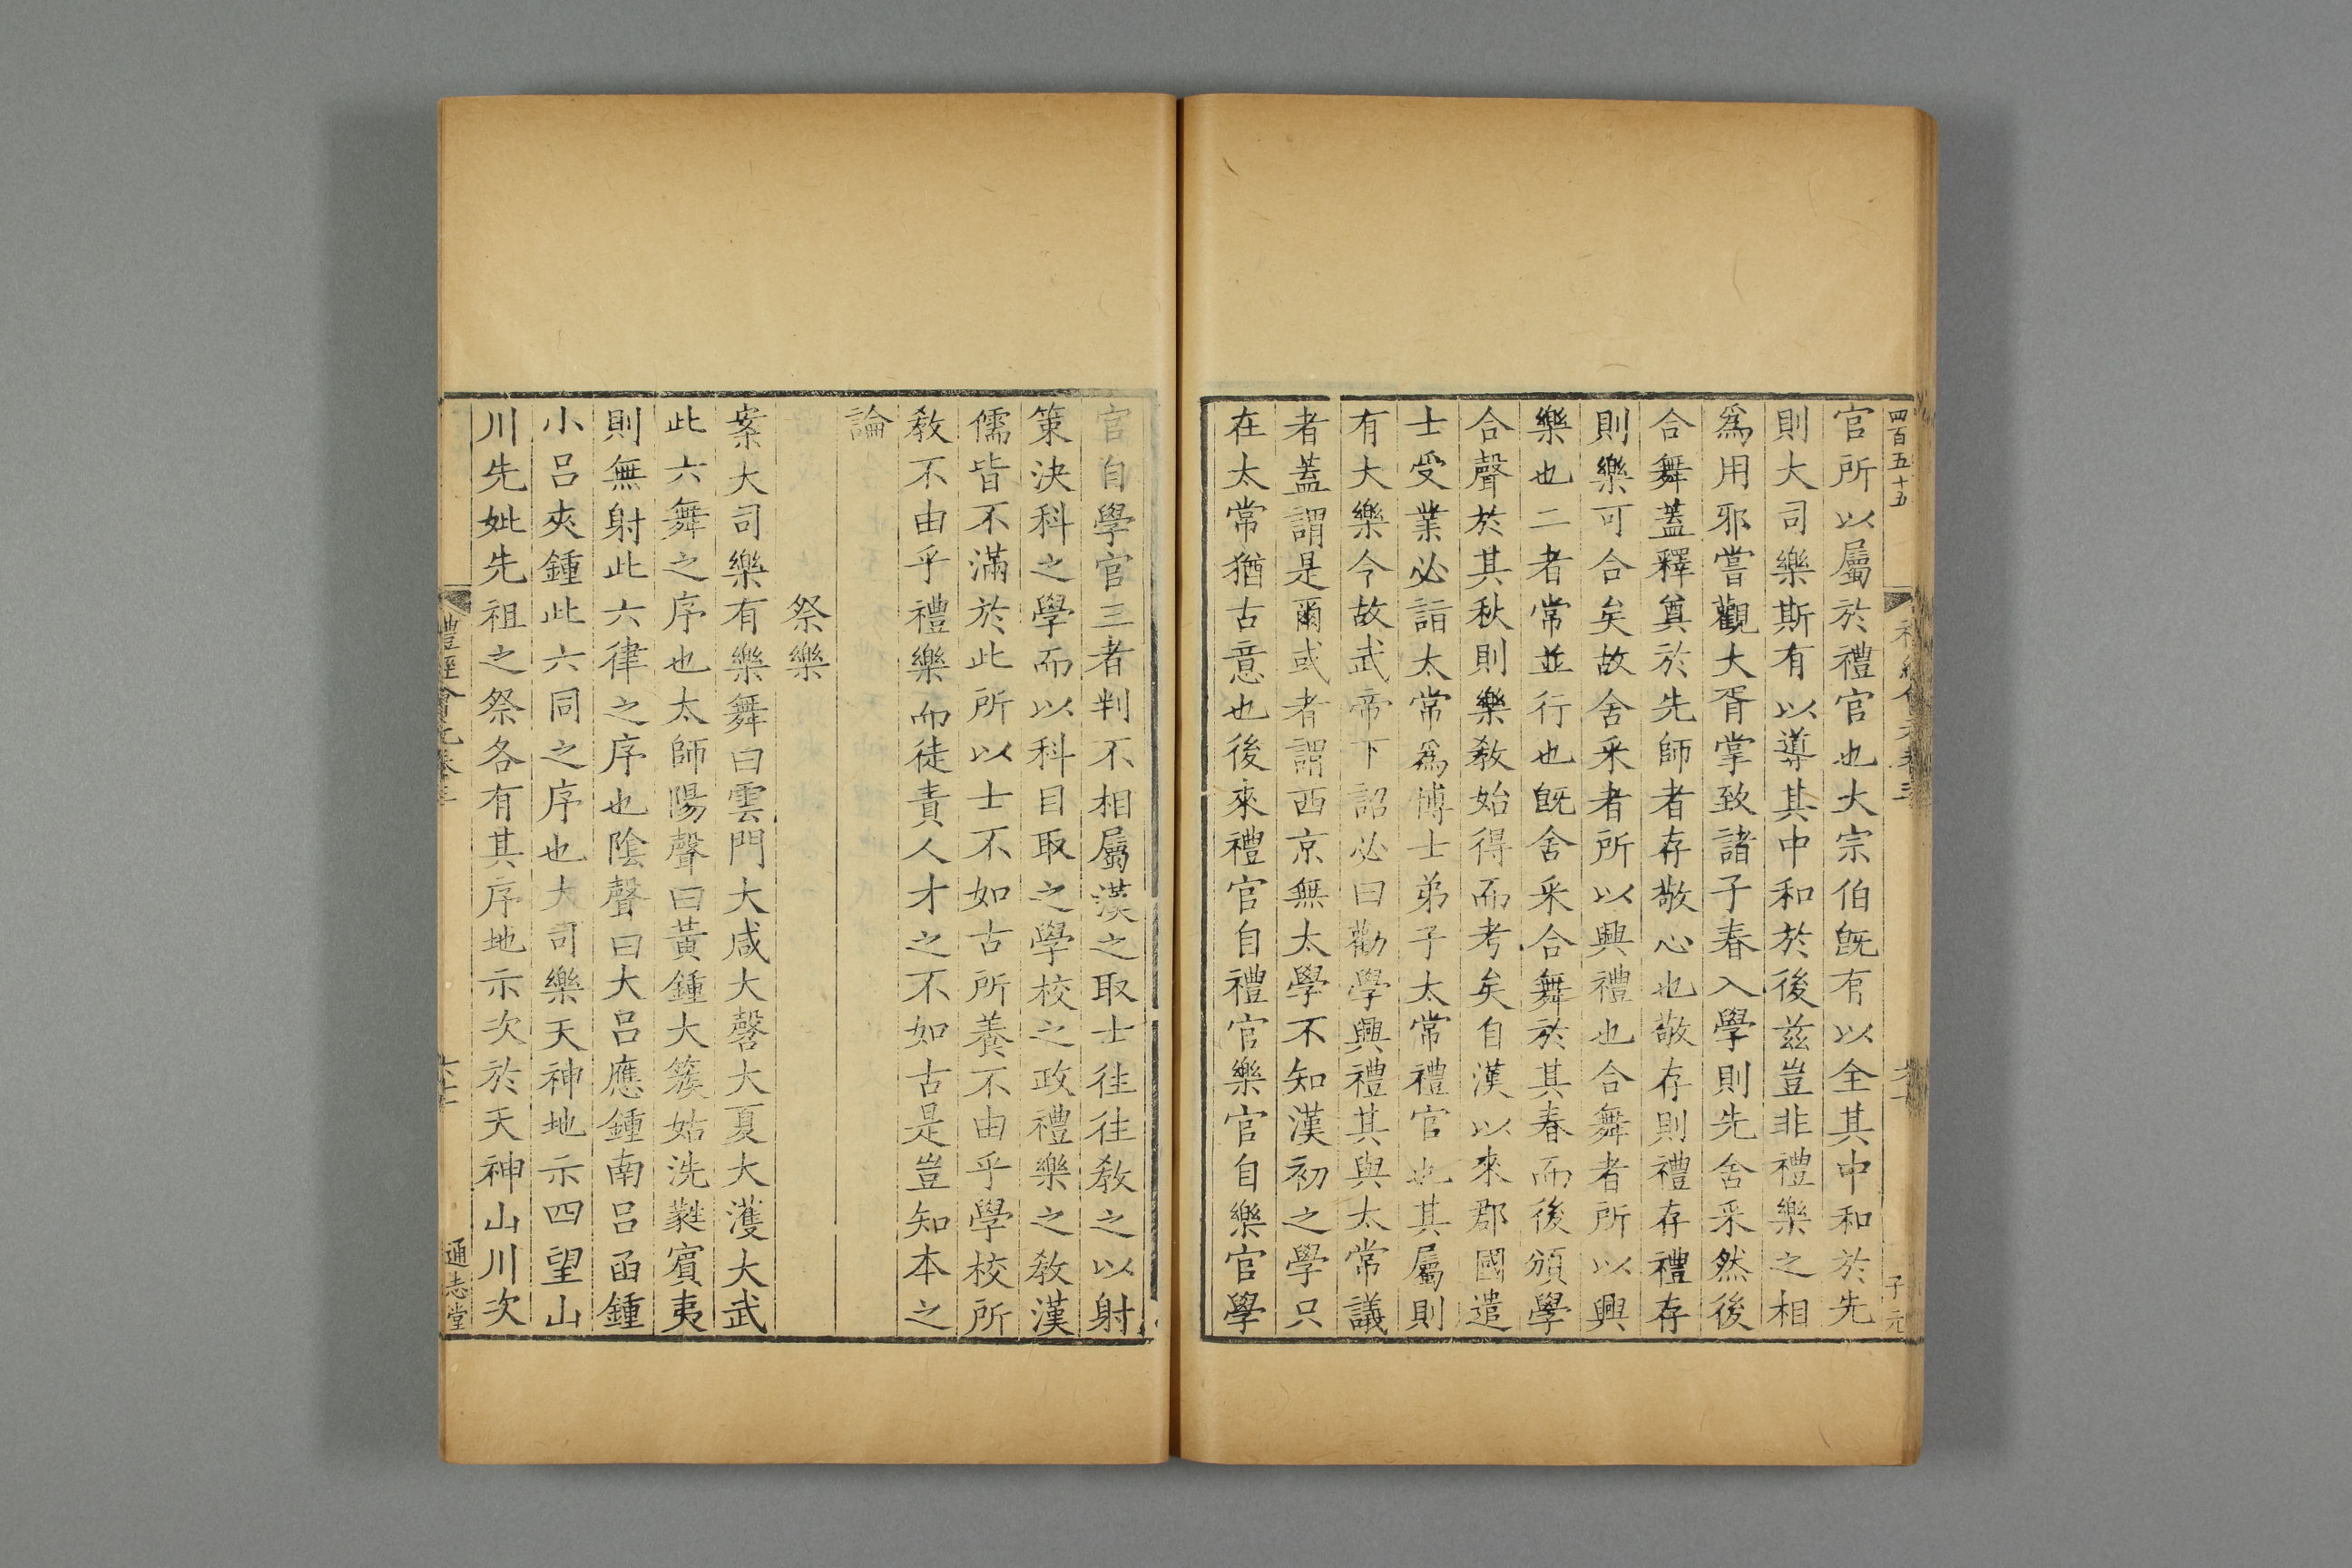 四百五十五
子元
官所以屬於禮官也大宗伯旣有以全其中和於先
則大司樂斯有以導其中和於後兹豈非禮樂之相
爲用邪嘗觀大胥掌致諸子春入學則先舍采然後
合舞蓋釋奠於先師者存敬心也敬存則禮存禮存
則樂可合矣故舍采者所以興禮也合舞者所以興
樂也二者常並行也旣舍采合舞於其春而後頒學
合聲於其秋則樂敎始得而考矣自漢以來郡國遣
士受業必詣太常爲博士弟子太常禮官也其屬則
有大樂令故武帝下詔必曰勸學興禮其與太常議
者蓋謂是爾或者謂西京無太學不知漢初之學只
在太常猶古意也後來禮官自禮官樂官自樂官學
官自學官三者判不相屬漢之取士往往敎之以射
策決科之學而以科目取之學校之政禮樂之敎漢
儒皆不滿於此所以士不如古所養不由乎學校所
敎不由乎禮樂而徒責人才之不如古是豈知本之
論
祭樂
案大司樂有樂舞曰雲門大咸大磬大夏大濩大武
此六舞之序也太師陽聲曰黃鍾大簇姑洗蕤賓夷
則無射此六律之序也陰聲曰大呂應鍾南呂函鍾
小呂夾鍾此六同之序也大司樂天神地示四望山
川先妣先祖之祭各有其序地示次於天神山川次
禮經會元卷三
通志堂